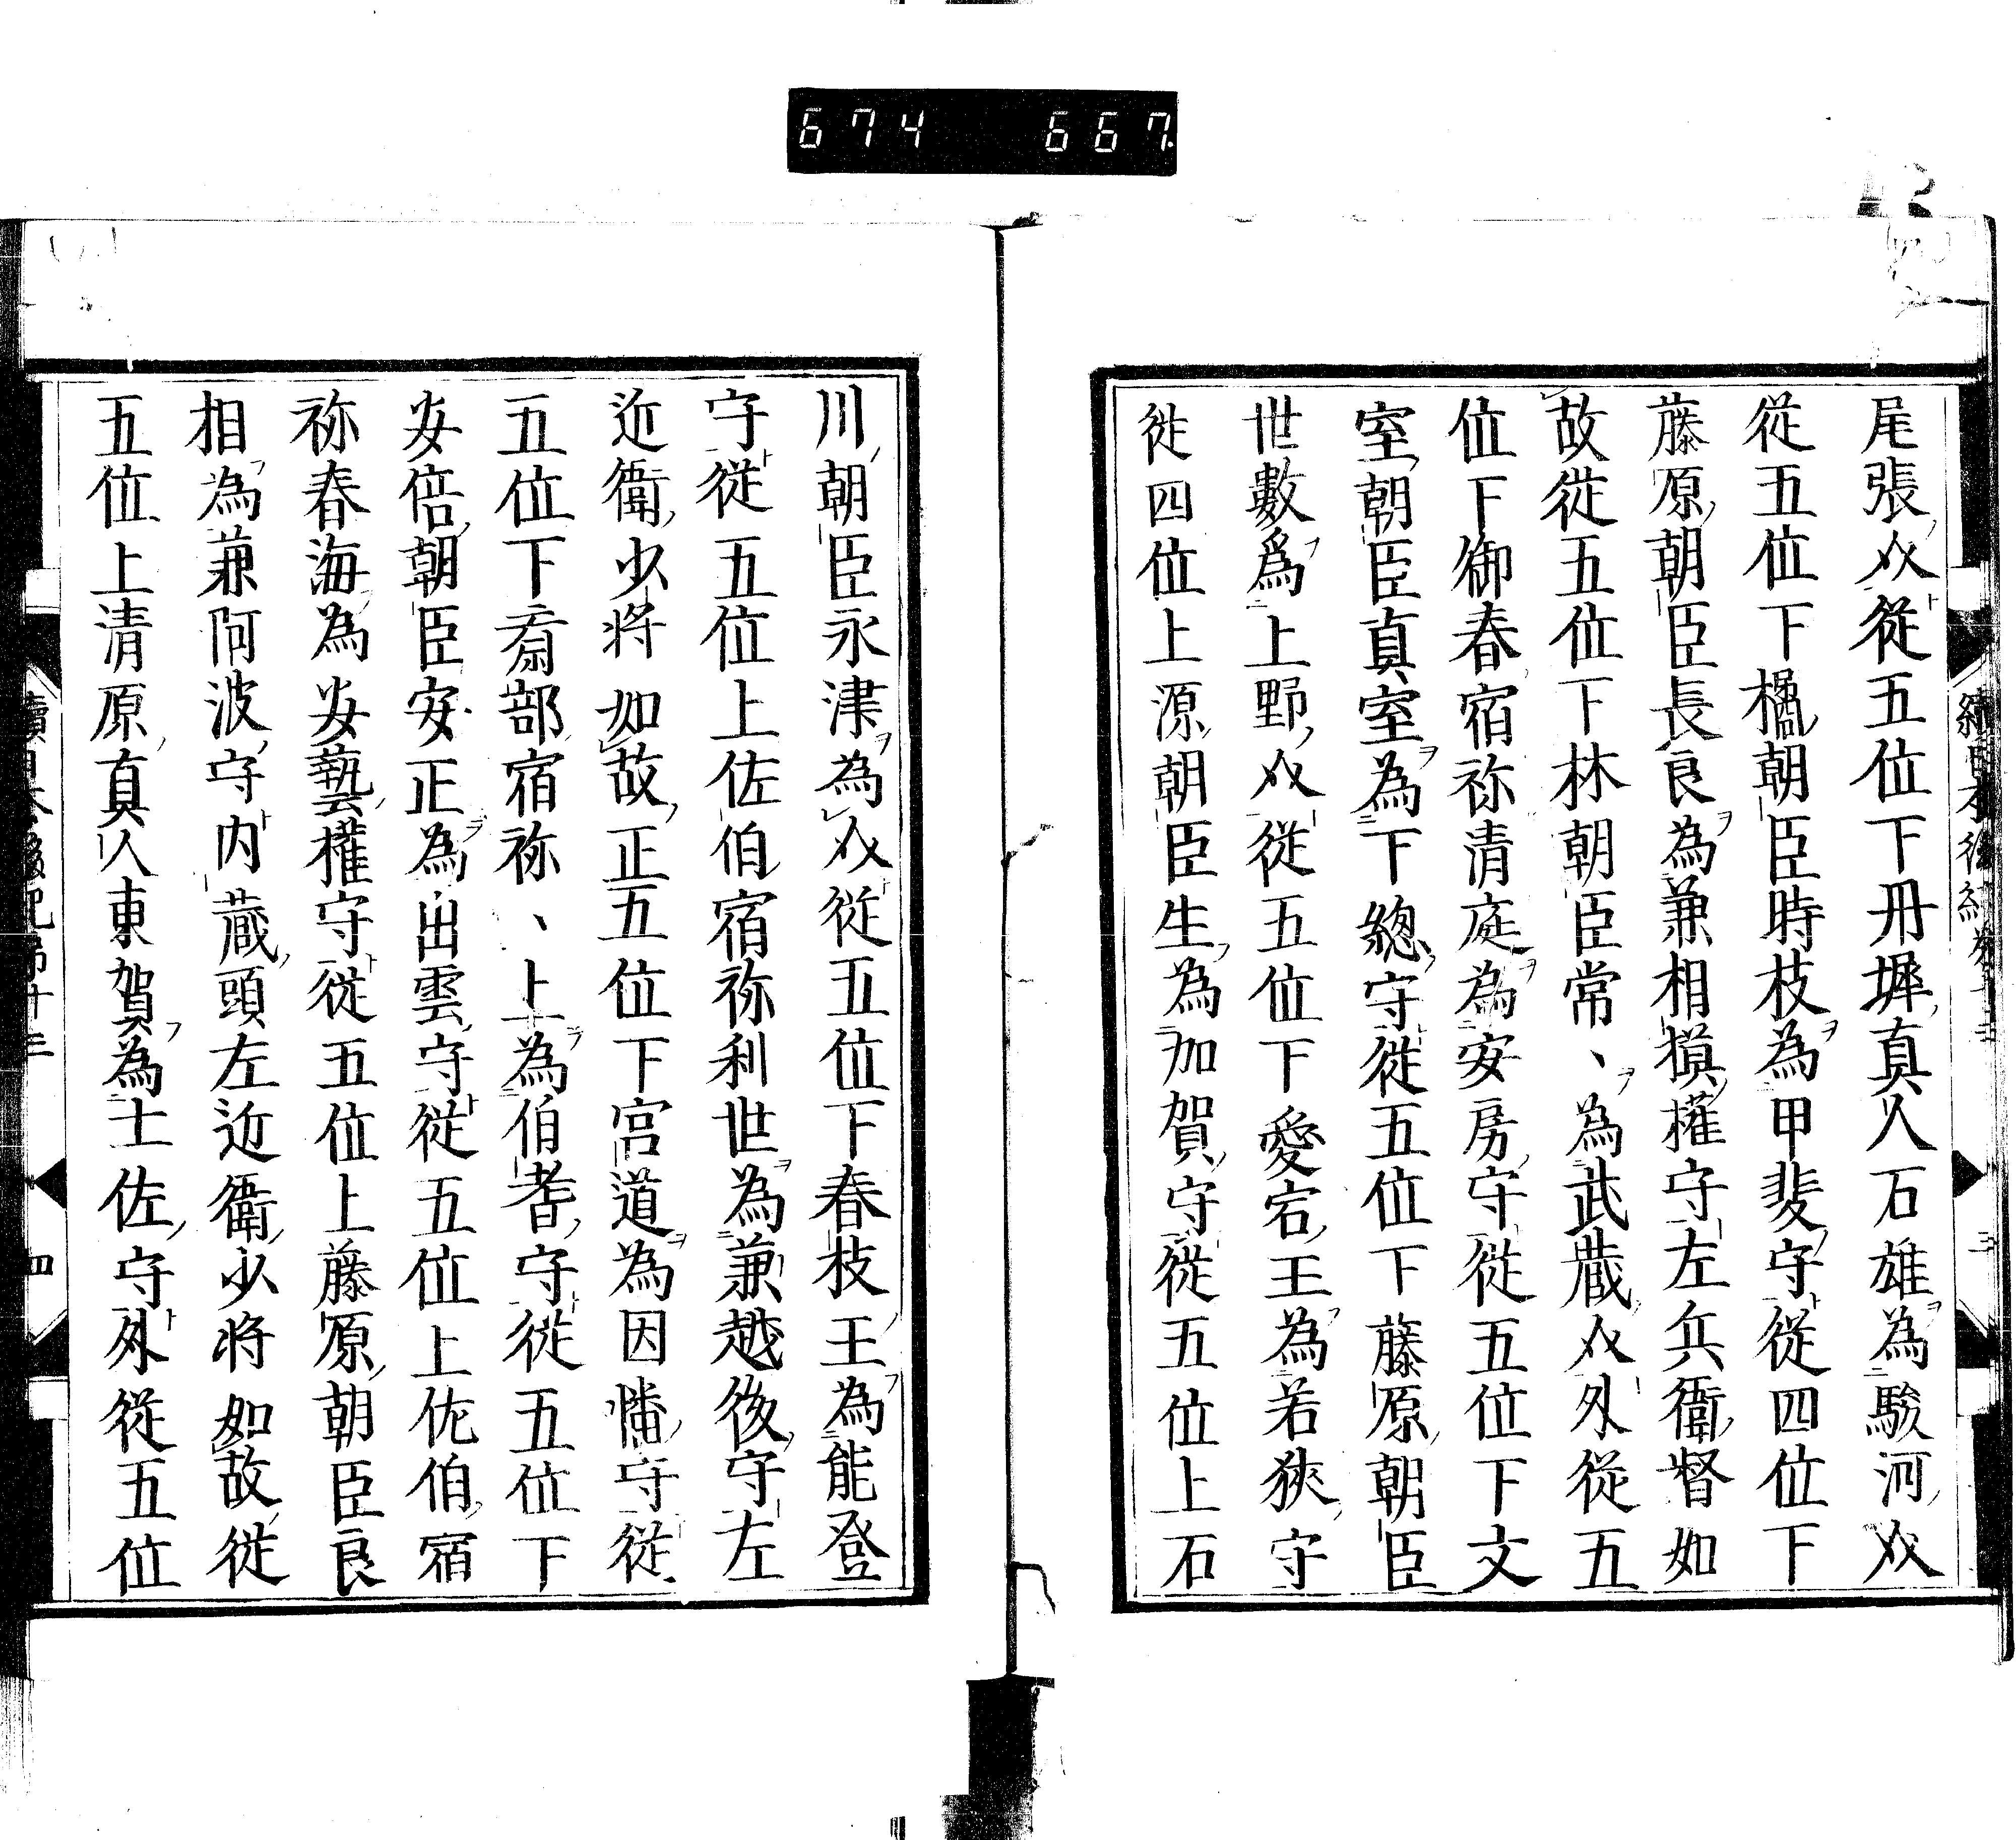 674 667
尾張介從五位下丹墀真人石雄為駿河介
從五位下橘朝臣時枝為甲斐守從四位下
藤原朝臣長良為兼相摸權守左兵衛督如
故從五位下林朝臣常、為武蔵介外從五
位下御春宿祢清庭為安房守從五位下文
室朝臣真室為下總守從五位下藤原朝臣
世數爲上野介從五位下愛宕王為若狹守
從四位上源朝臣生為加賀守從五位上石
川朝臣永津為介從五位下春枝王為能登
守從五位上佐伯宿祢利世為兼越後守左
近衛少將如故正五位下宮道為因幡守從
五位下斎部宿祢、上為伯耆守從五位下
安倍朝臣安正為出雲守從五位上佐伯宿
祢春海為安藝權守從五位上藤原朝臣良
相為兼阿波守内蔵頭左近衛少將如故從
五位上清原真人東賀為土佐守外從五位
四